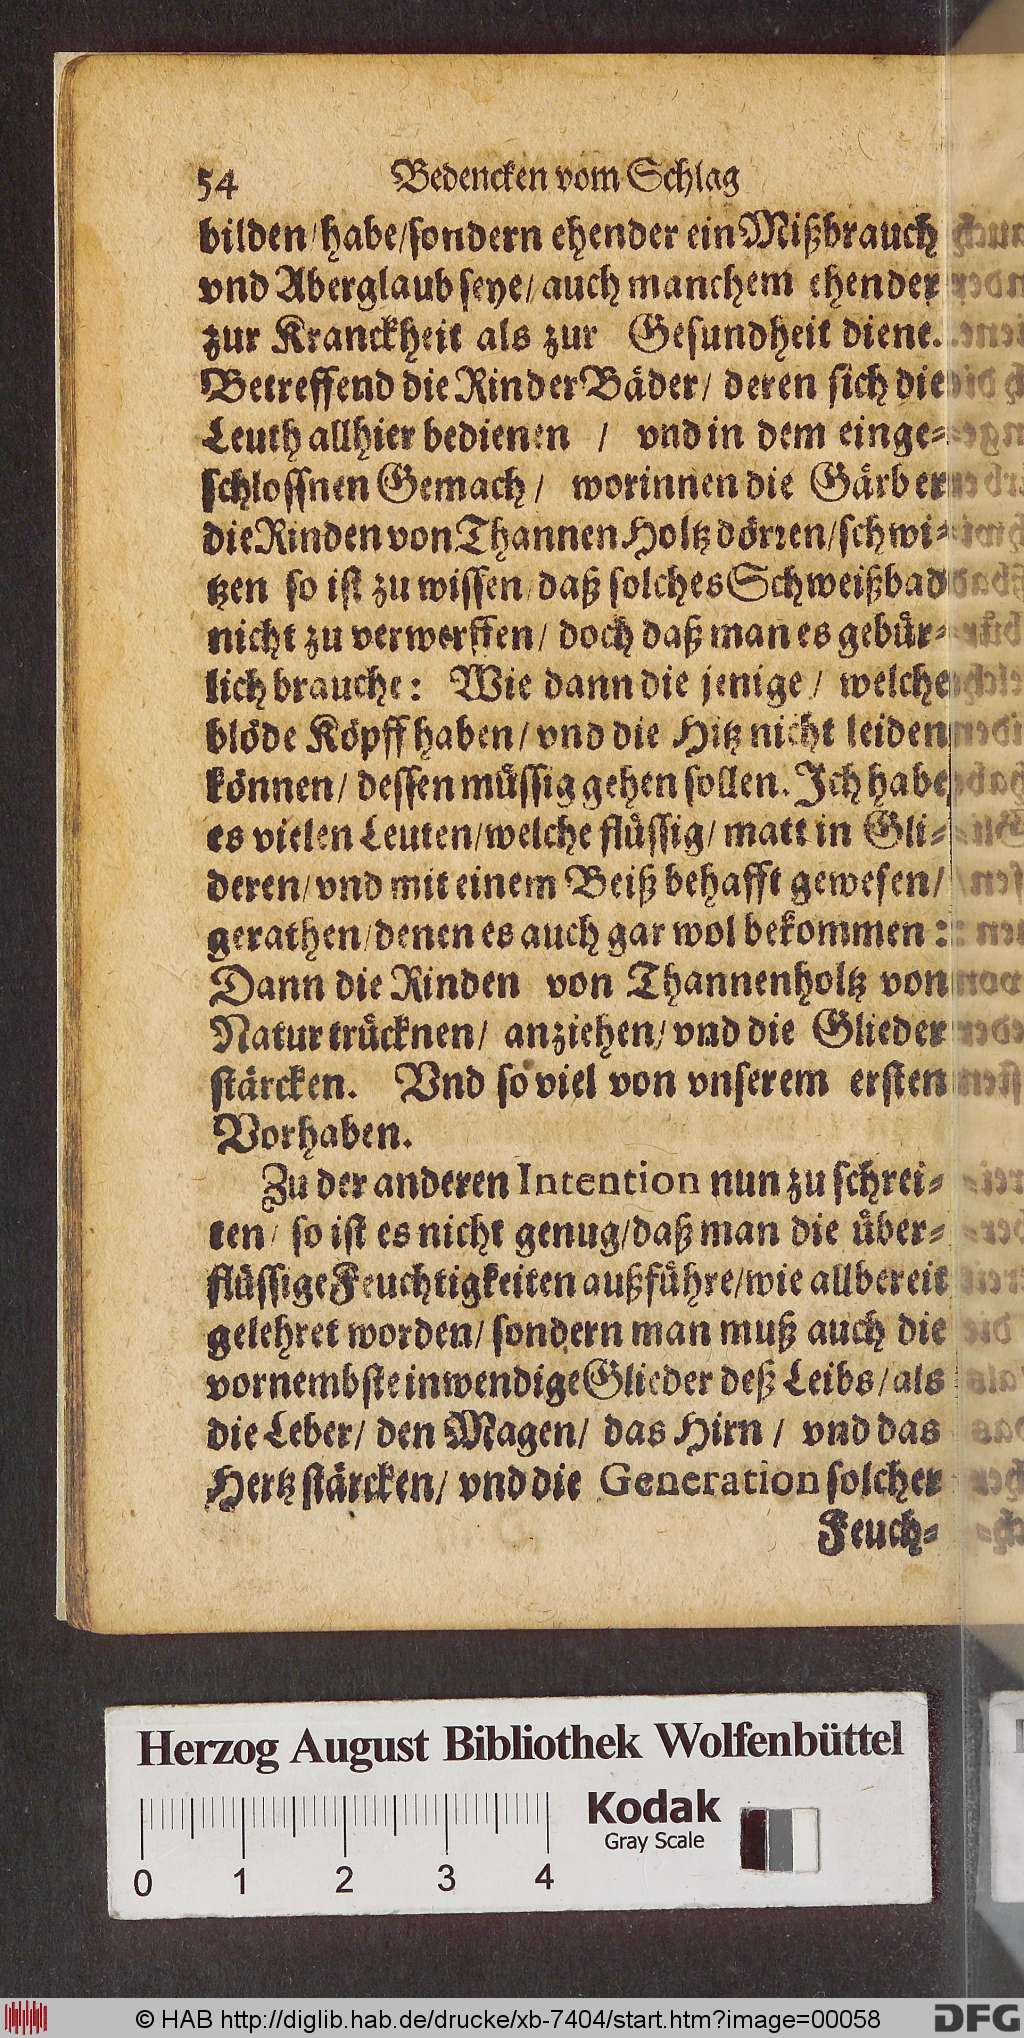 54 Bedencken vom Schlag
bilden/habe/sondern ehender ein Mißbrauch
vnd Aberglaub seye/auch manchem ehender
zur Kranckheit als zur Gesundheit diene.
Betreffend die Rinder Bäder/ deren sich die
Leuth allhier bedienen / vnd in dem einge-
schlossnen Gemach/ worinnen die Gärber
die Rinden von Thannen Holtz dörren/schwi-
tzen so ist zu wissen/daß solches Schweißbad
nicht zu verwerffen/ doch daß man es gebür-
lich brauche: Wie dann die jenige/ welche
blöde Köpff haben/vnd die Hitz nicht leiden
können/ dessen müssig gehen sollen. Ich habe
es vielen Leuten/welche flüssig/ matt in Gli-
deren/vnd mit einem Beiß behafft gewesen/
gerathen/denen es auch gar wol bekommen:
Dann die Rinden von Thannenholtz von
Natur trücknen/ anziehen/vnd die Glieder
stärcken. Vnd so viel von vnserem ersten
Vorhaben.
Zu der anderen Intention nun zu schrei-
ten/ so ist es nicht genug/daß man die über-
flüssige Feuchtigkeiten außführe/wie allbereit
gelehret worden/ sondern man muß auch die
vornembste inwendige Glieder deß Leibs/als
die Leber/ den Magen/ das Hirn / vnd das
Hertz stärcken/ vnd die Generation solcher
Feuch-
Herzog August Bibliothek Wolfenbüttel
Kodak
Gray Scale
0 1 2 3 4
© HAB http://diglib.hab.de/drucke/xb-7404/start.htm?image=00058
DFG